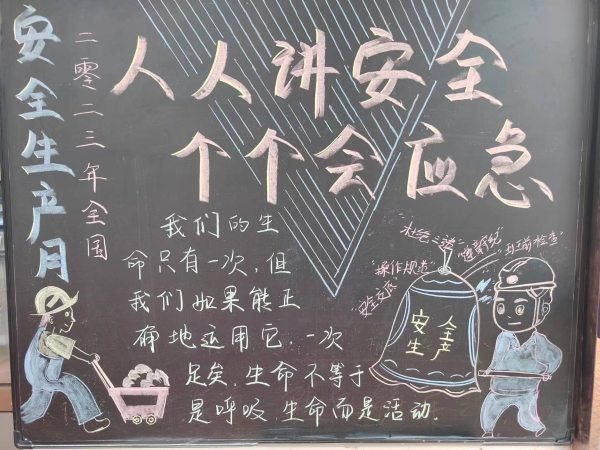 安全生产月
二零二三年全国
人人讲安全
个个会应急
我们的生
命只有一次,但
我们如果能正
确地运用它,一次
足矣.生命不等于
是呼吸,生命而是活动.
杜绝三违
"操作规范"
"安全交底"
"班前检查"
安全
生产